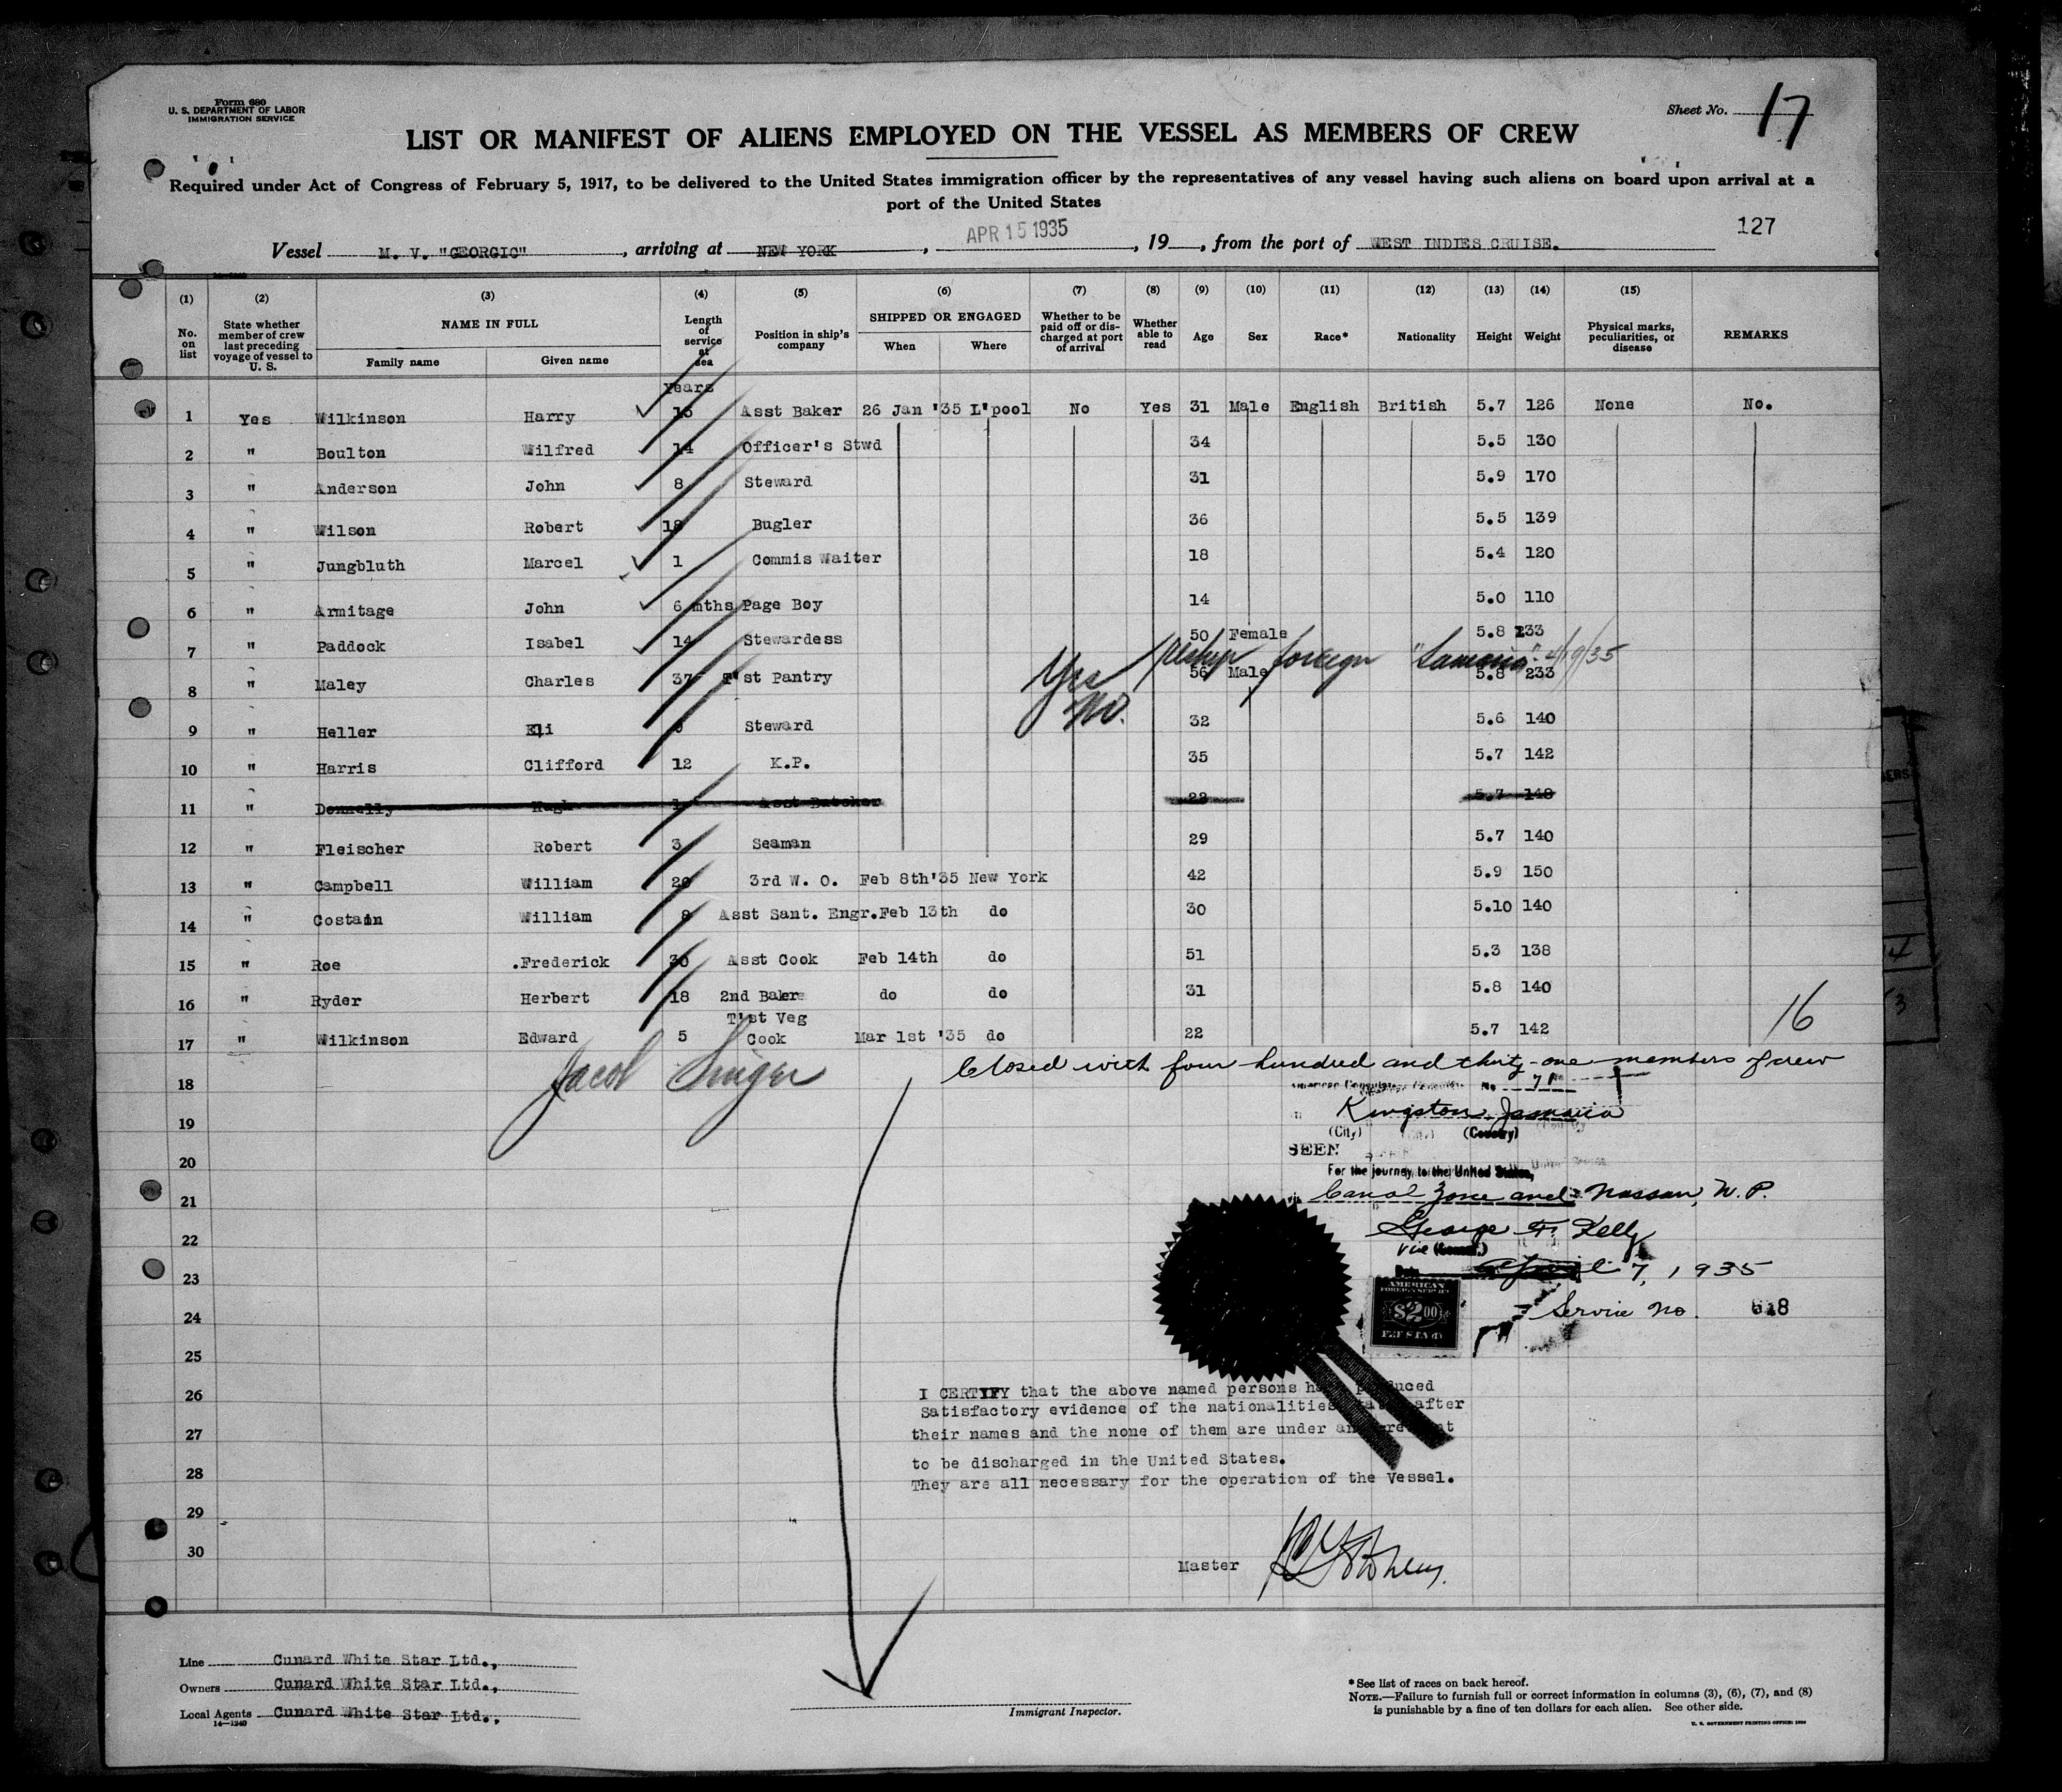 Form 680
U. S. DEPARTMENT OF LABOR
IMMIGRATION SERVICE
Sheet No. 17
LIST OR MANIFEST OF ALIENS EMPLOYED ON THE VESSEL AS MEMBERS OF CREW
Required under Act of Congress of February 5, 1917, to be delivered to the United States immigration officer by the representatives of any vessel having such aliens on board upon arrival at a
port of the United States
127
Vessel M. V. "GEORGIC", arriving at NEW YORK, APR 15 1935, 19 , from the port of WEST INDIES CRUISE.
(1) (2) (3) (4) (5) (6) (7) (8) (9) (10) (11) (12) (13) (14) (15)
No. on list State whether member of crew last preceding voyage of vessel to U. S. NAME IN FULL Length of service at sea Position in ship's company SHIPPED OR ENGAGED Whether to be paid off or discharged at port of arrival Whether able to read Age Sex Race* Nationality Height Weight Physical marks, peculiarities, or disease REMARKS
Family name Given name When Where
Years
1 Yes Wilkinson Harry 15 Asst Baker 26 Jan '35 L'pool No Yes 31 Male English British 5.7 126 None No.
2 " Boulton Wilfred 14 Officer's Stwd 34 5.5 130
3 " Anderson John 8 Steward 31 5.9 170
4 " Wilson Robert 18 Bugler 36 5.5 139
5 " Jungbluth Marcel 1 Commis Waiter 18 5.4 120
6 " Armitage John 6 mths Page Boy 14 5.0 110
7 " Paddock Isabel 14 Stewardess 50 Female 5.8 133
Yes Reship foreign "Samaria" 4/19/35
8 " Maley Charles 37 T'st Pantry 56 Male 5.8 233
No.
9 " Heller Eli Steward 32 5.6 140
10 " Harris Clifford 12 K.P. 35 5.7 142
11 " Donnelly Hugh 1 Asst Butcher 23 5.7 148
12 " Fleischer Robert 3 Seaman 29 5.7 140
13 " Campbell William 20 3rd W. O. Feb 8th'35 New York 42 5.9 150
14 " Costain William 8 Asst Sant. Engr. Feb 13th do 30 5.10 140
15 " Roe .Frederick 36 Asst Cook Feb 14th do 51 5.3 138
16 " Ryder Herbert 18 2nd Baker do do 31 5.8 140
T'st Veg
17 " Wilkinson Edward 5 Cook Mar 1st '35 do 22 5.7 142
16
Jacob Singer
Closed with four hundred and thirty-one members of crew
18
American Consulate No 71
Kingston, Jamaica
19
(City) (Country)
SEEN
20
For the journey to the United States,
21
Canal Zone and Nassau, N.P.
22
George F. Kelly
Vice (Consul.)
23
Date April 7, 1935
AMERICAN
FOREIGN SERVICE
$2.00
24
Service No. 618
25
26
I CERTIFY that the above named persons have produced
Satisfactory evidence of the nationalities stated after
27
their names and the none of them are under an agreement
to be discharged in the United States.
28
They are all necessary for the operation of the Vessel.
29
30
Master
Line Cunard White Star Ltd.,
Owners Cunard White Star Ltd.,
Local Agents Cunard White Star Ltd.,
14—1240
Immigrant Inspector.
*See list of races on back hereof.
NOTE.—Failure to furnish full or correct information in columns (3), (6), (7), and (8)
is punishable by a fine of ten dollars for each alien. See other side.
U. S. GOVERNMENT PRINTING OFFICE